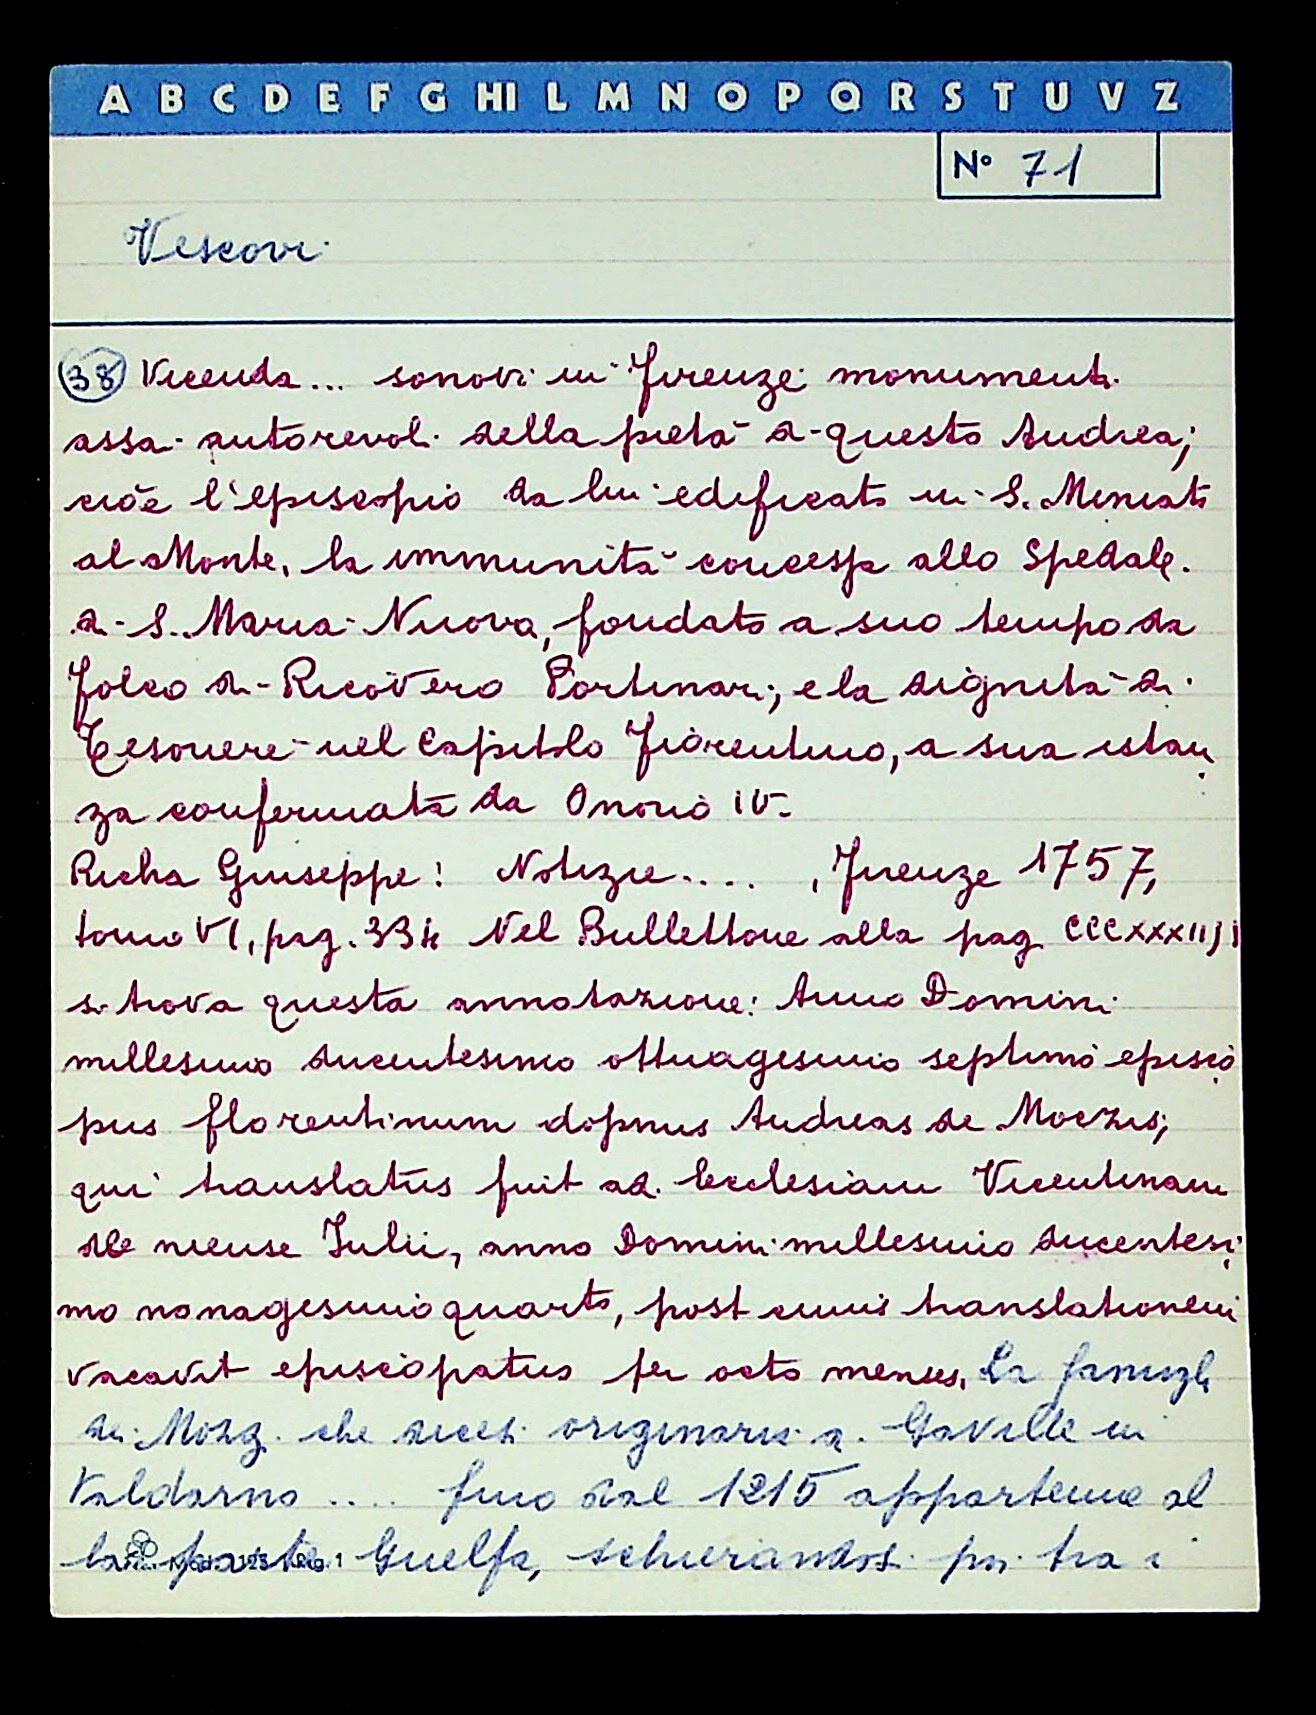 A B C D E F G HI L M N O P Q R S T U V Z
N° 71
Vescovi
(38) Vicenda... sonovi in Firenze monumenti
assai autorevoli della pietà di questo Andrea;
cioè l'episcopio da lui edificato in S. Miniato
al Monte, la immunità concessa allo Spedale
di S. Maria Nuova, fondato a suo tempo da
Folco di Ricovero Portinari; e la dignità di
Tesoriere nel Capitolo Fiorentino, a sua istan
za confermata da Onorio IV.
Richa Giuseppe: Notizie.... , Firenze 1757,
tomo VI, pag. 334 Nel Bullettone alla pag CCCXXXIIJJ
si trova questa annotazione: Anno Domini
millesimo ducentesimo ottuagesimo septimo episco
pus florentinum dopnus Andreas de Moczis;
qui translatus fuit ad Ecclesiam Vicentinam
de mense Iulii, anno Domini millesimo ducentesi
mo nonagesimo quarto, post cuius translationem
vacavit episcopatus per octo menses. La famiglia
dei Mozzi che dicesi originaria di Gaville in
Valdarno .... fino dal 1215 appartenne al
la parte Guelfa, schierandosi poi tra i